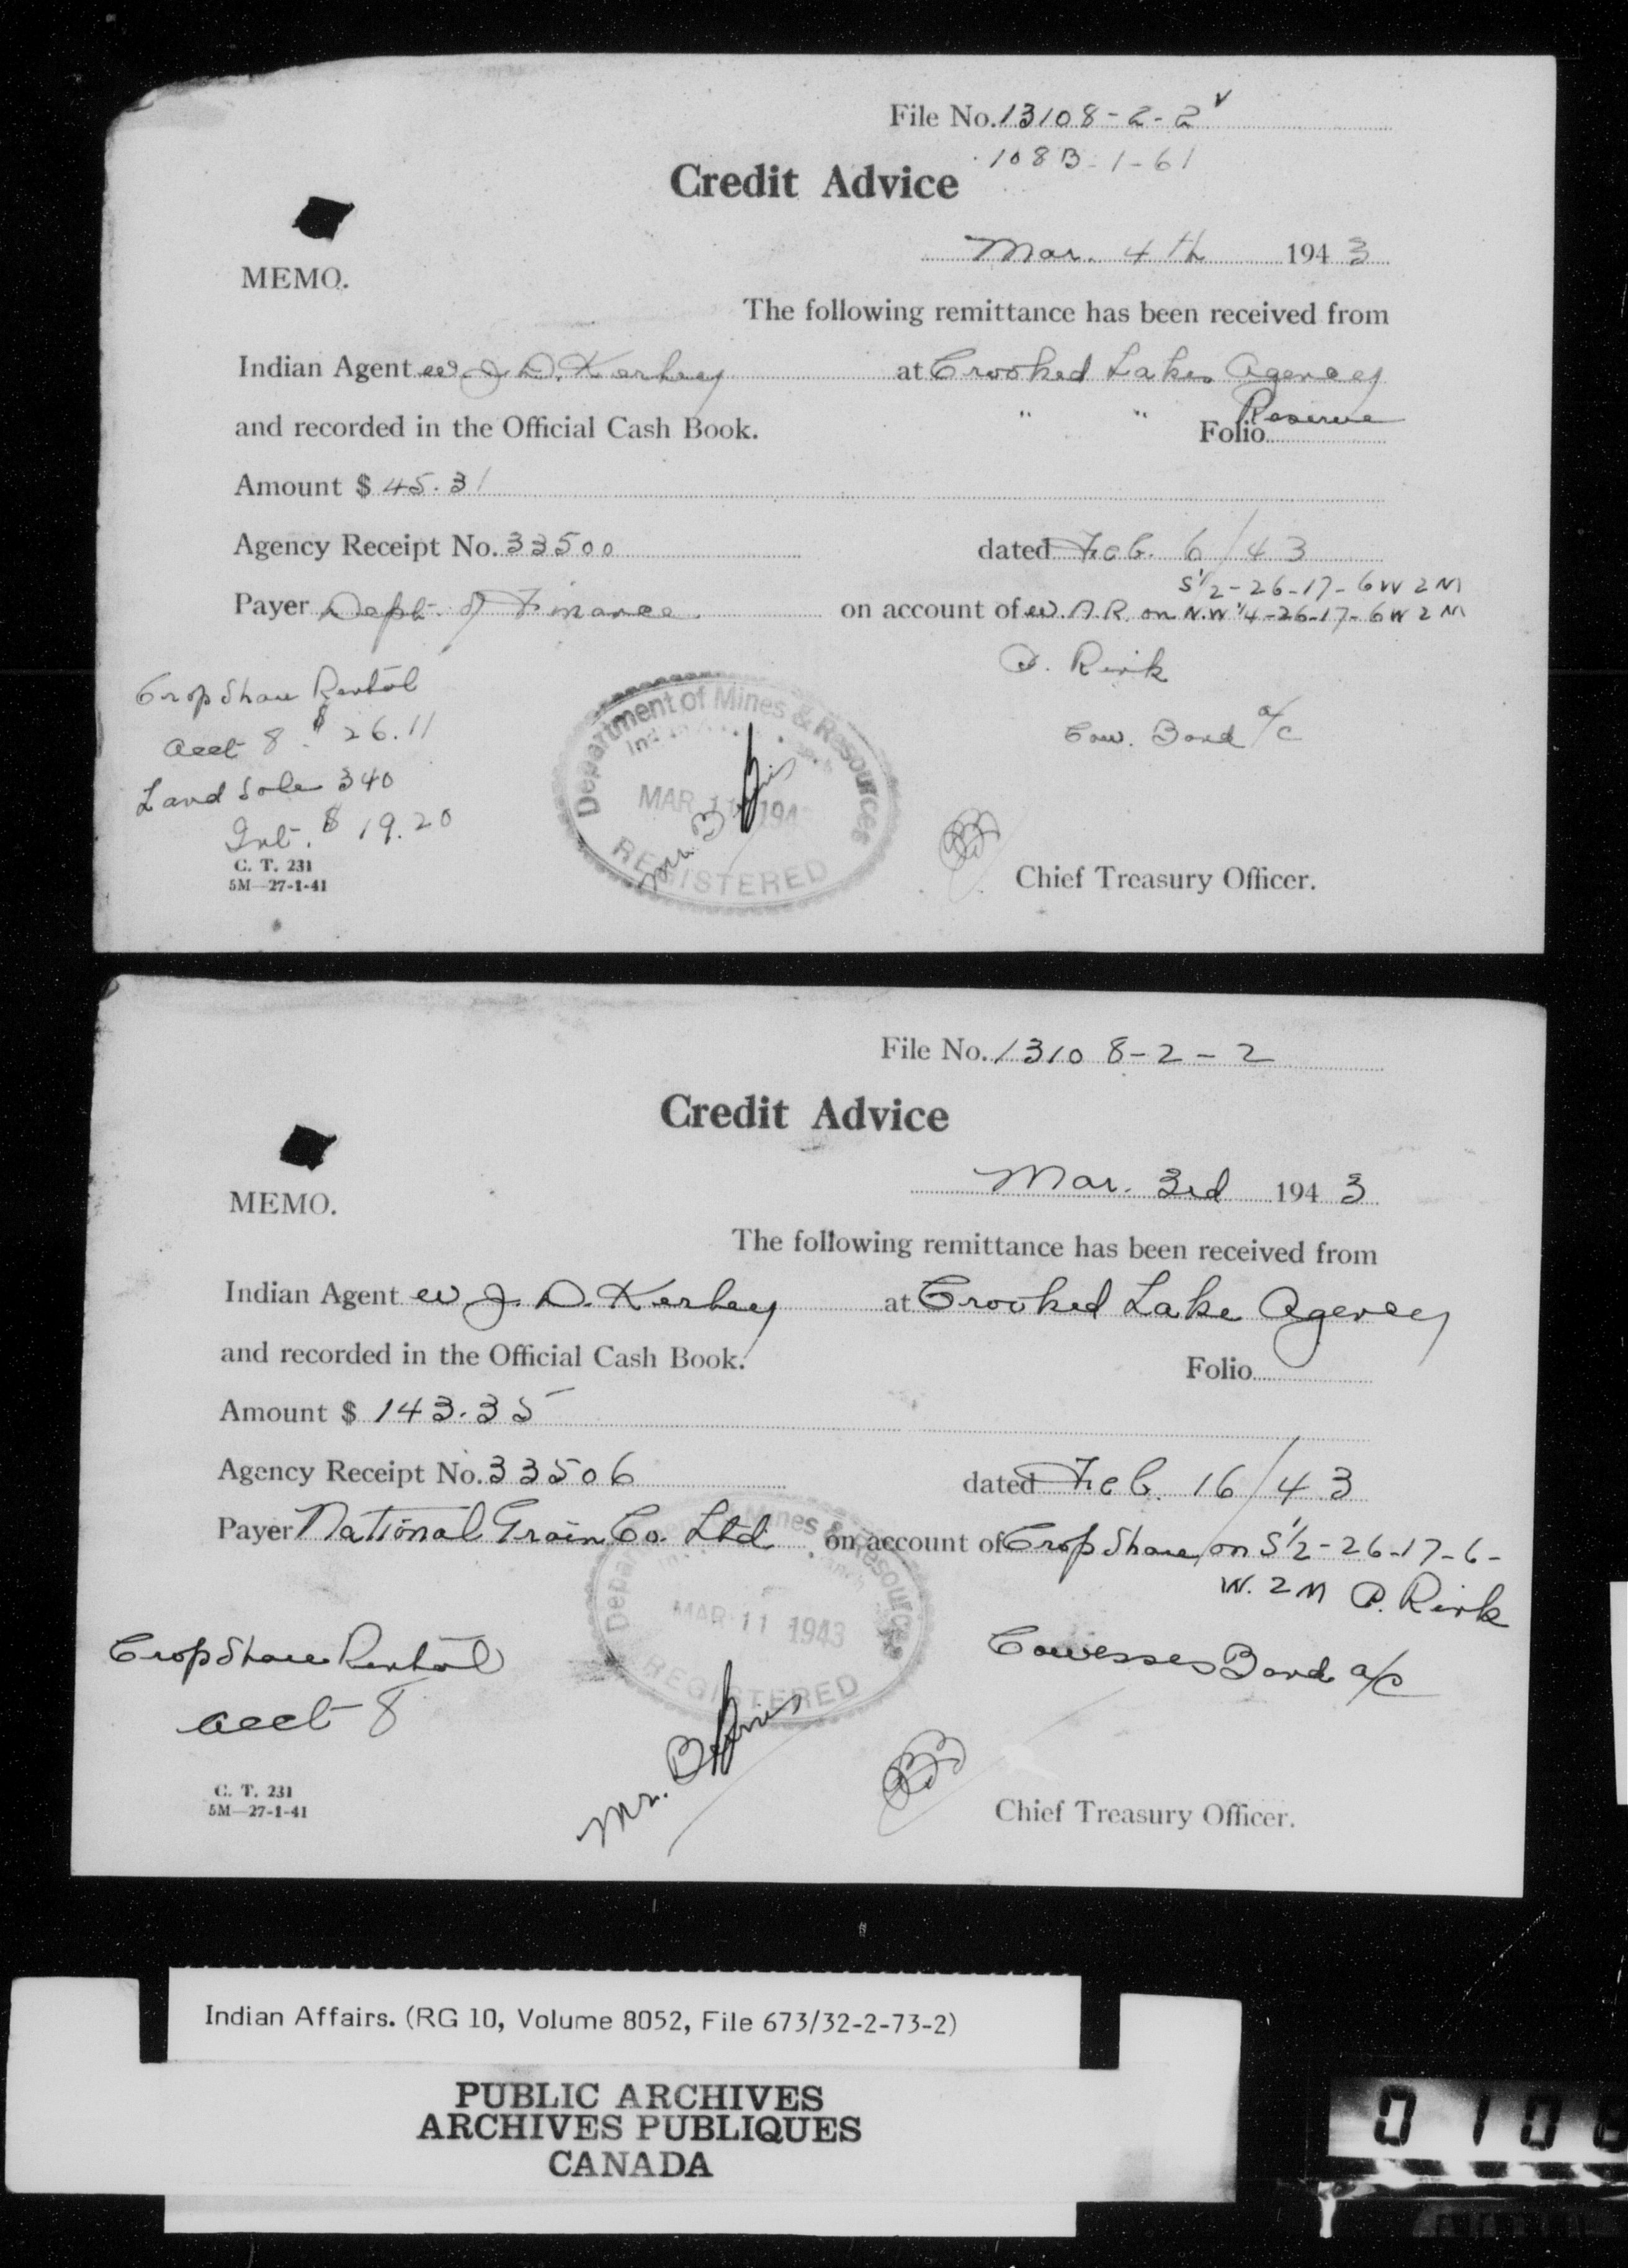 File No. 13108-2-2
108B-1-61
Credit Advice
Mar. 4th 1943
MEMO.
The following remittance has been received from
Indian Agent W. J. D. Kerley at Crooked Lakes Agency
" " Reserve
and recorded in the Official Cash Book. Folio
Amount $ 45.31
Agency Receipt No. 33500 dated Feb. 6/43
S½-26-17-6W2M
Payer Dept. of Finance on account of W.A.R. on N.W¼-26-17-6W2M
P. Rink
Crop Share Rental
Acct 8. $26.11
Cow. Band a/c
Land Sale 340
Int. $19.20
Department of Mines & Resources
MAR 11 194
REGISTERED
Mr.
C. T. 231
5M-27-1-41
Chief Treasury Officer.
File No. 13108-2-2
Credit Advice
Mar. 3rd 1943
MEMO.
The following remittance has been received from
Indian Agent W. J. D. Kerley at Crooked Lake Agency
and recorded in the Official Cash Book. Folio
Amount $ 143.35
Agency Receipt No. 33506 dated Feb. 16/43
Payer National Grain Co. Ltd. on account of Crop Share on S½-26-17-6-
W. 2M P. Rink
MAR 11 1943
REGISTERED
Crop Share Rental
Acct 8
Cowesses Band a/c
Mr.
C. T. 231
5M-27-1-41
Chief Treasury Officer.
Indian Affairs. (RG 10, Volume 8052, File 673/32-2-73-2)
PUBLIC ARCHIVES
ARCHIVES PUBLIQUES
CANADA